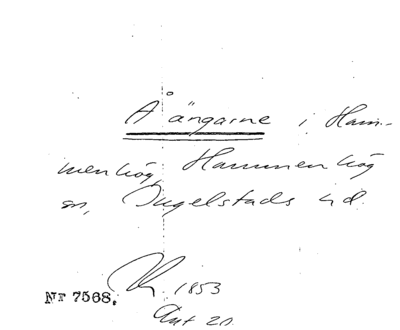 Å ängarne i Ham-
menhög, Hammenhög
sn, Ingelstads hd.
R. 1853
Nr 7568.
Ant 20.